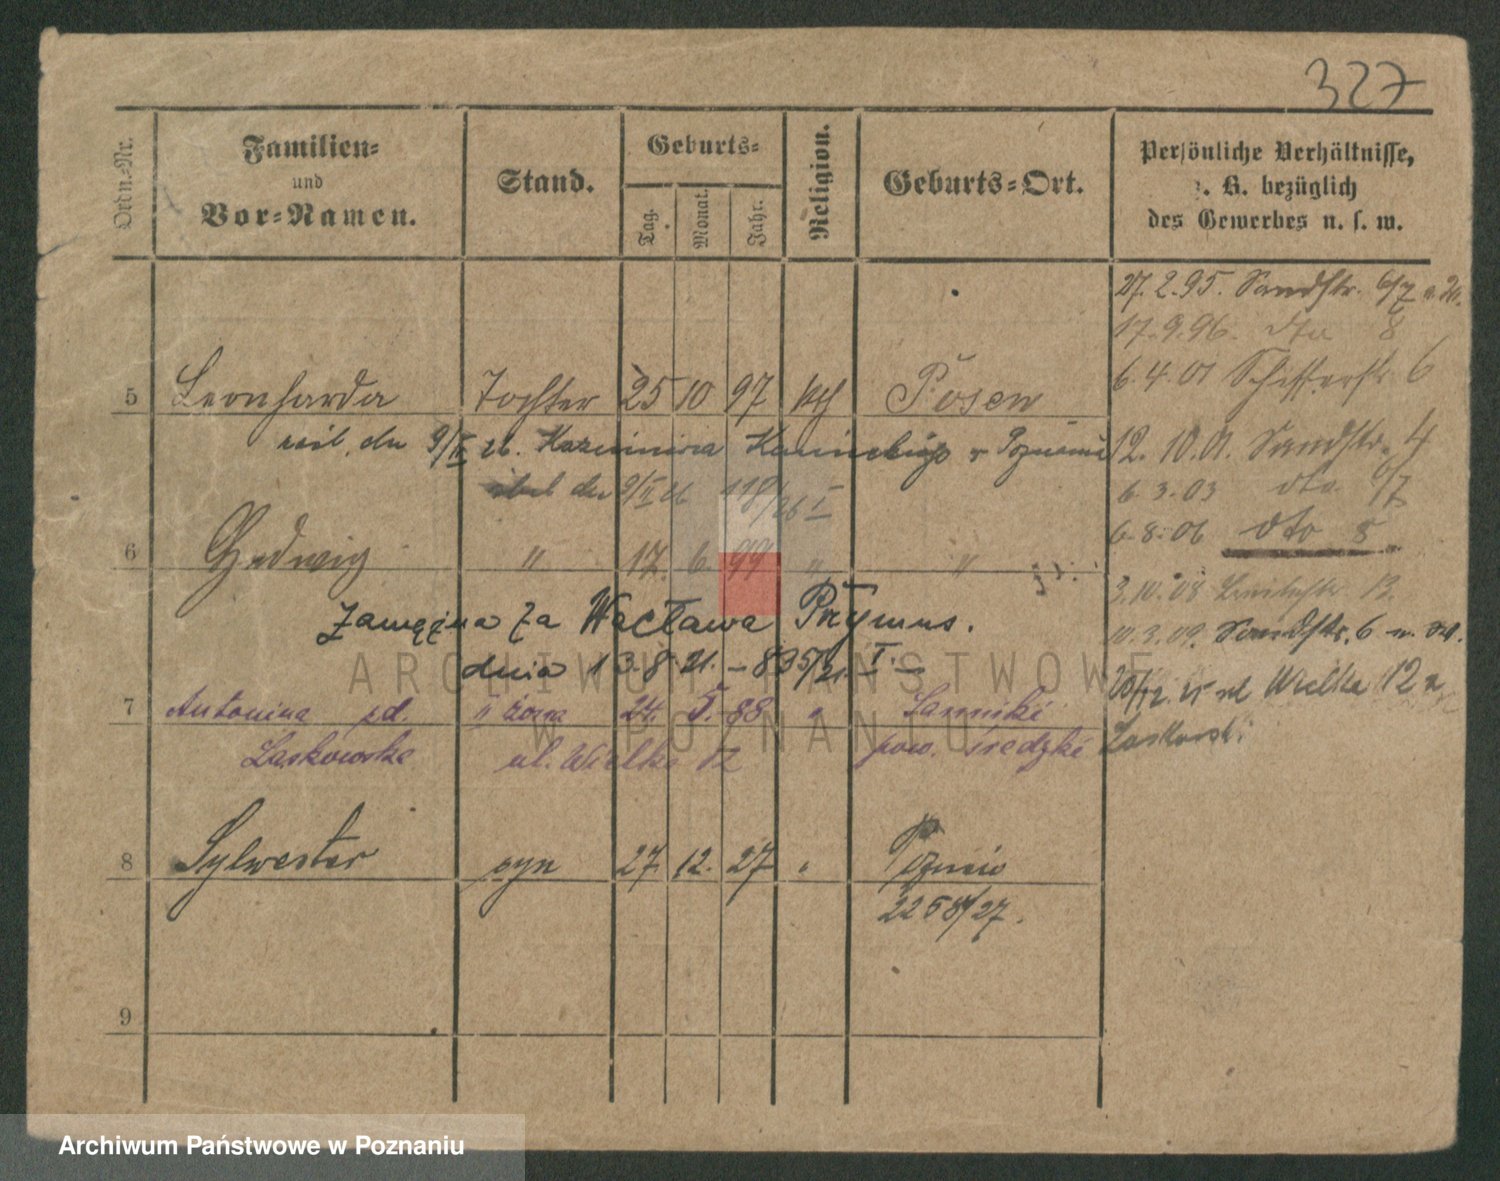 327
Ordn.-Nr.
Familien-
und
Vor-Namen.
Stand.
Geburts-
Tag.
Monat.
Jahr.
Religion.
Geburts-Ort.
Persönliche Verhältnisse,
z. B. bezüglich
des Gewerbes u. s. w.
27.2.95. Sandstr. 6/7
17.9.96. dto 8
6.4.01 6
5 Leonharda Tochter 25 10 97 kath Posen
12.10.01. Sandstr. 4
9/II 26. Kazimierza w Poznaniu
6.3.03 dto 6/7
9/II 26 118/26 I
6.8.06 dto 8
6 Hedwig " 17. 6. 99 " "
3.10.08 13.
zamężna za Wacława Prymus.
10.3.09. Sandstr. 6
dnia 13.8.21. – 835/21. I. –
ul Wielka 12
7 Antonina zd. II żona 24. 5. 88 "
Laskowska ul. Wielka 12 pow. Średzki
8 Sylwester syn 27. 12. 27 "
2258/27.
9
ARCHIWUM PAŃSTWOWE
W POZNANIU
Archiwum Państwowe w Poznaniu